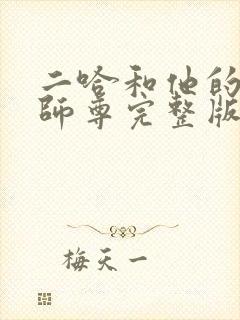 二哈和他的
師尊完整版
梅天一